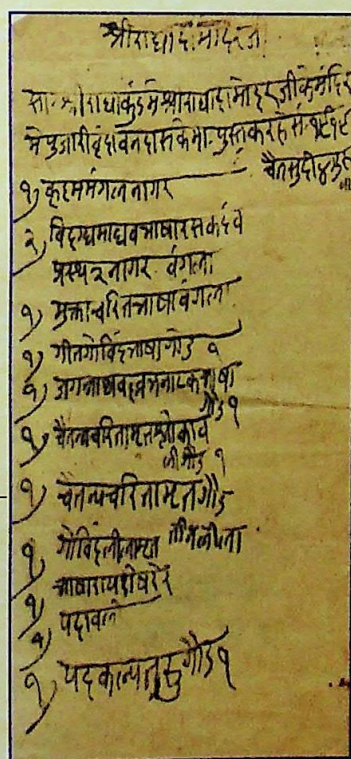 श्रीराधादामोदरजी
सा॰ श्रीराधाकुंडमे श्रीराधादामोदरजीकेमंदिर
मे पुजारीवृंदावनदासकेमा॰ पुस्तकरहे सं॰ १९१९
चैतसुदी
१) मंगलनागर
२) विदग्धमाधवभाषारसकदंब
प्रस्थ २ नागर बंगला
१) मुक्ताचरितभाषाबंगला
१) गीतगोविंदभाषागौड १
१) जगन्नाथवल्लभनाटकभाषा
गौड १
१) चैतन्यचरितामृतश्लोकार्थ
गौड १
१) चैतन्यचरितामृतगौड
१) गोविंदलीलामृत
१)
१) पदावली
१) पदकल्पतरुगौड १